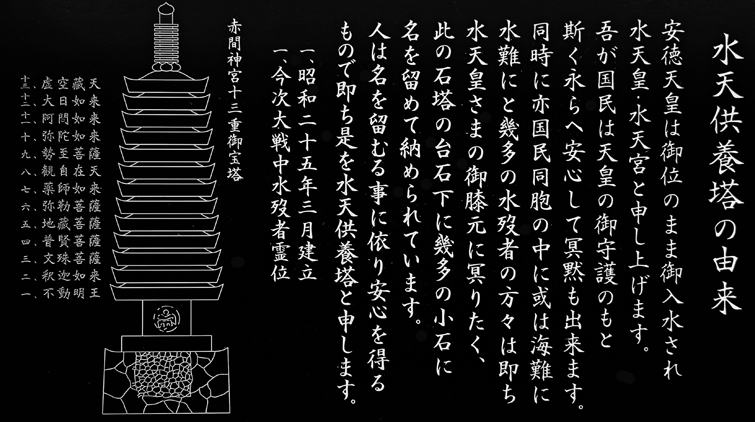 水天供養塔の由来
安徳天皇は御位のまま御入水され
水天皇・水天宮と申し上げます。
吾が国民は天皇の御守護のもと
斯く永らへ安心して冥黙も出来ます。
同時に亦国民同胞の中に或は海難に
水難にと幾多の水歿者の方々は即ち
水天皇さまの御膝元に冥りたく、
此の石塔の台石下に幾多の小石に
名を留めて納められています。
人は名を留むる事に依り安心を得る
もので即ち是を水天供養塔と申します。
一、昭和二十五年三月建立
一、今次大戦中水歿者霊位
赤間神宮十三重御宝塔
十三、虚空蔵天
十二、大日如来
十一、阿閦如来
十、弥陀如来
九、勢至菩薩
八、観自在天
七、薬師如来
六、弥勒菩薩
五、地蔵菩薩
四、普賢菩薩
三、文殊菩薩
二、釈迦如来
一、不動明王